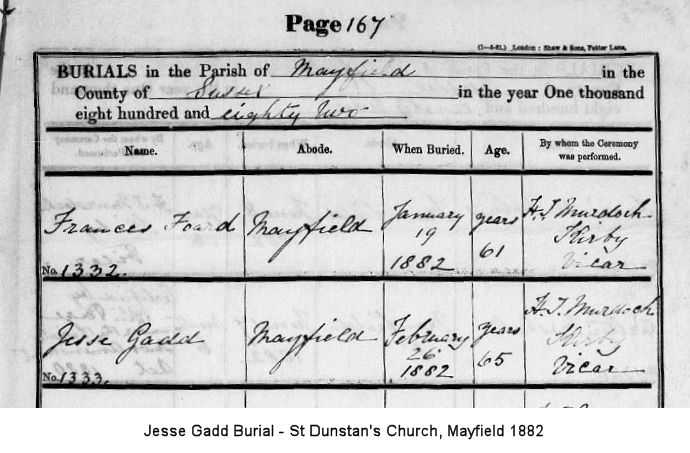 Page 167
(1—5-81.) London: Shaw & Sons, Fetter Lane,
BURIALS in the Parish of Mayfield in the
County of Sussex in the year One thousand
eight hundred and eighty two
Name. Abode. When Buried. Age. By whom the Ceremony was performed.
Frances Foard Mayfield January 19 1882 years 61 H. T. Murdoch Kirby Vicar
No. 1332.
Jesse Gadd Mayfield February 26 1882 years 65 H. T. Murdoch Kirby Vicar
No. 1333.
Jesse Gadd Burial - St Dunstan's Church, Mayfield 1882